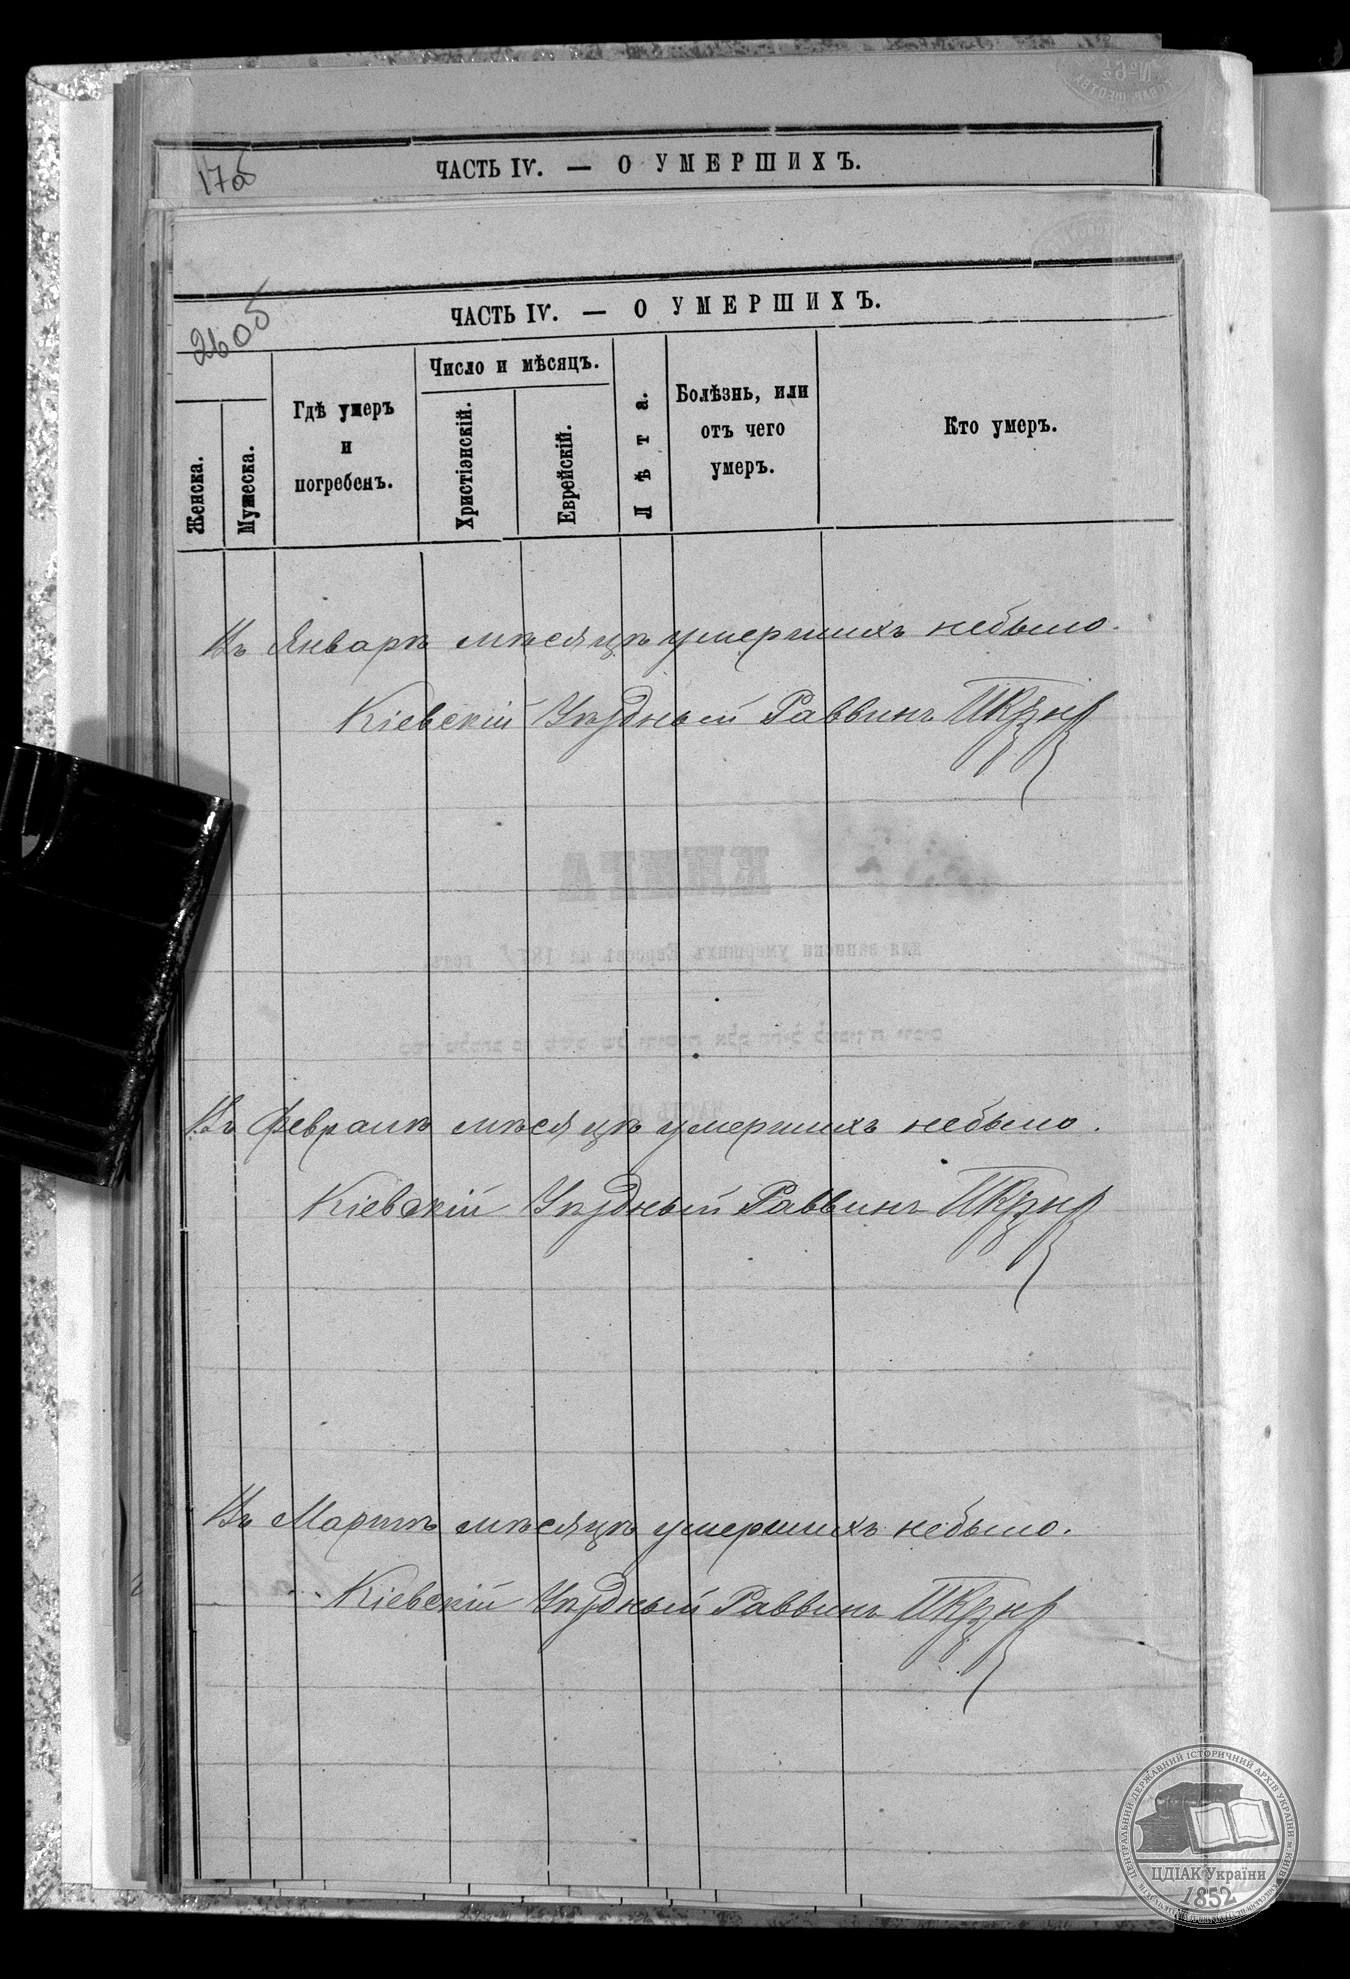 17об
ЧАСТЬ IV. — О УМЕРШИХЪ.
26об
ЧАСТЬ IV. — О УМЕРШИХЪ.
Женска.
Мужеска.
Гдѣ умеръ
и
погребенъ.
Число и мѣсяцъ.
Христіэнскій.
Еврейскій.
Лѣта.
Болѣзнь, или
отъ чего
умеръ.
Кто умеръ.
Въ Январѣ мѣсяцѣ умершихъ небыло.
Кіевскій Уѣздный Раввинъ
Въ Февралѣ мѣсяцѣ умершихъ небыло.
Кіевскій Уѣздный Раввинъ
Въ Мартѣ мѣсяцѣ умершихъ небыло.
Кіевскій Уѣздный Раввинъ
ЦЕНТРАЛЬНИЙ ДЕРЖАВНИЙ ІСТОРИЧНИЙ АРХІВ УКРАЇНИ м. КИЇВ
ЦДІАК України
1852